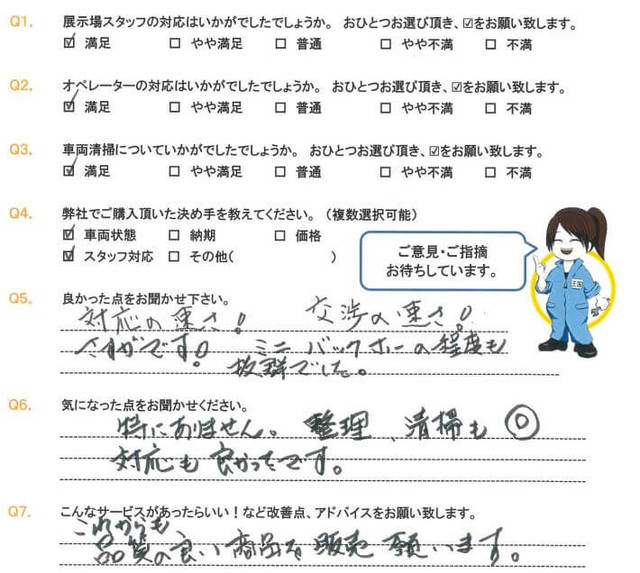 Q1. 展示場スタッフの対応はいかがでしたでしょうか。 おひとつお選び頂き、☑をお願い致します。
☑ 満足 □ やや満足 □ 普通 □ やや不満 □ 不満
Q2. オペレーターの対応はいかがでしたでしょうか。 おひとつお選び頂き、☑をお願い致します。
☑ 満足 □ やや満足 □ 普通 □ やや不満 □ 不満
Q3. 車両清掃についていかがでしたでしょうか。 おひとつお選び頂き、☑をお願い致します。
☑ 満足 □ やや満足 □ 普通 □ やや不満 □ 不満
Q4. 弊社でご購入頂いた決め手を教えてください。（複数選択可能）
☑ 車両状態 □ 納期 □ 価格
☑ スタッフ対応 □ その他( )
ご意見・ご指摘
お待ちしています。
Q5. 良かった点をお聞かせ下さい。
対応の速さ! 交渉の速さ!
さすがです! ミニバックホーの程度も
抜群でした。
Q6. 気になった点をお聞かせください。
特にありません。整理、清掃も◎
対応も良かったです。
Q7. こんなサービスがあったらいい！など改善点、アドバイスをお願い致します。
これからも
品質の良い商品を販売願います。